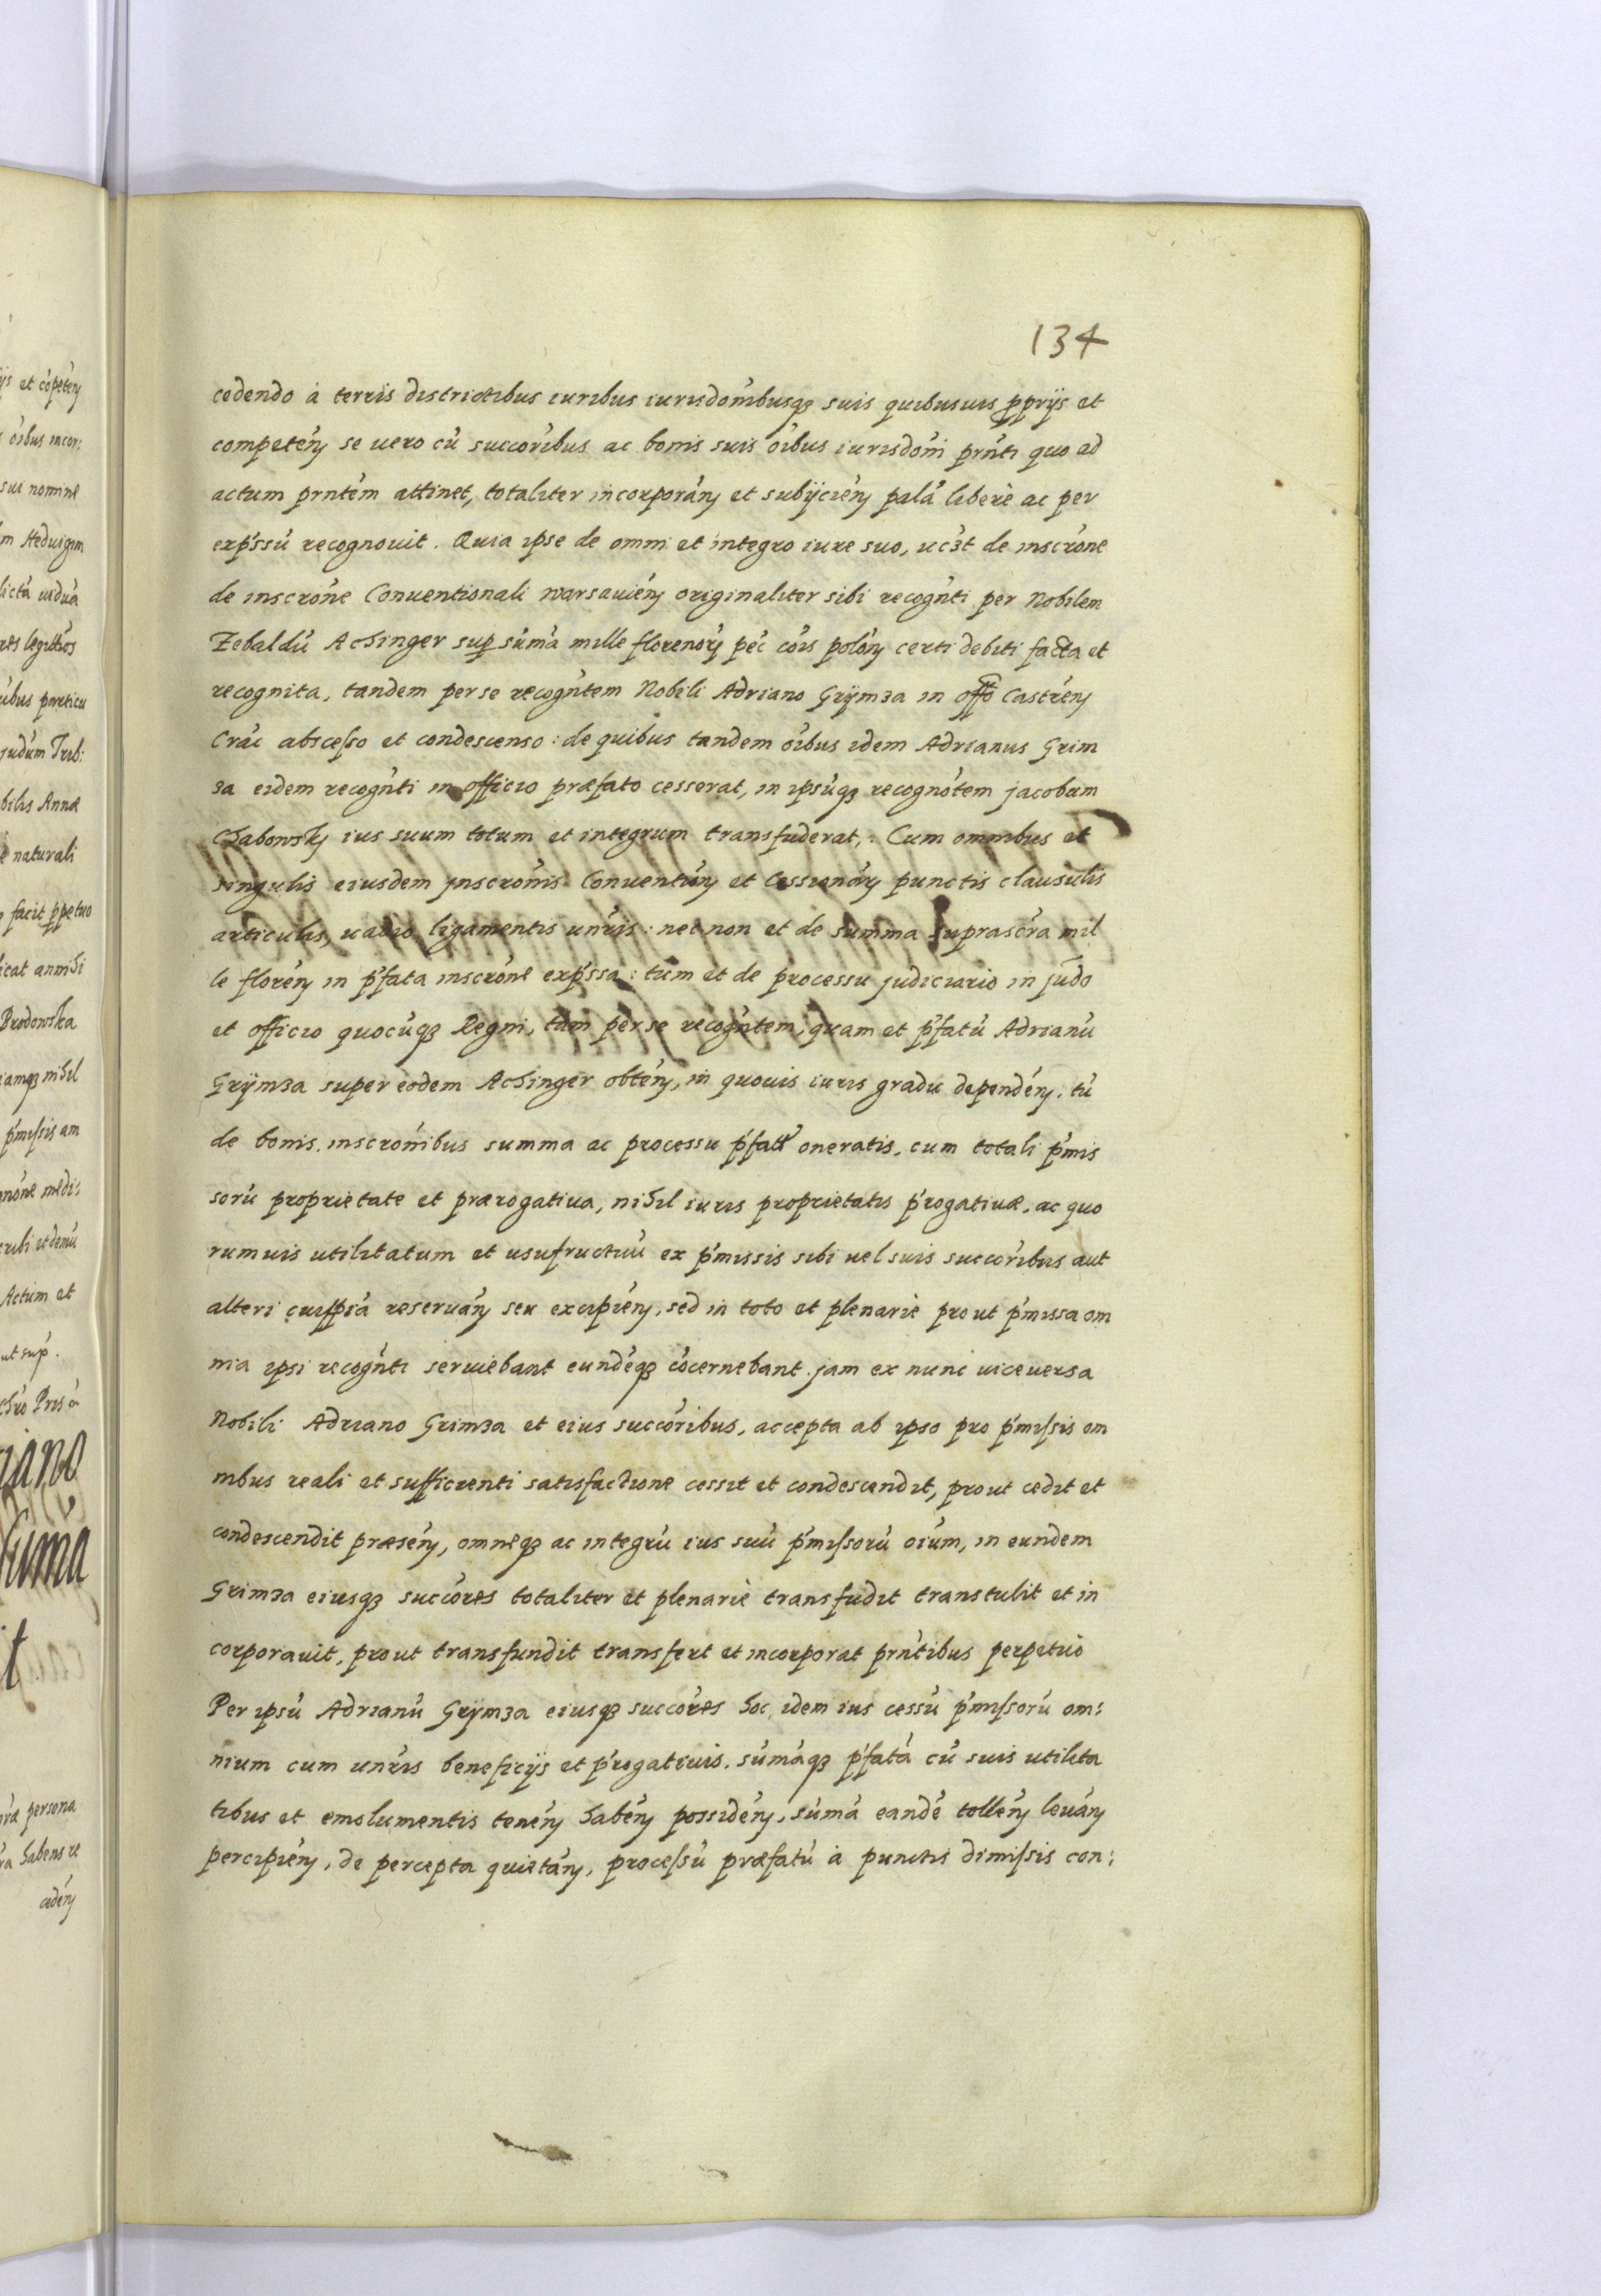 134
cedendo à terris districtibus iuribus iurisdońibusqꝫ suis quibusuis ꝓprijs et
competeńꝭ se uero cú succoŕibus ac bonis suis oíbus iurisdońi prńti quo ad
actum prntém attinet, totaliter incorporáńꝭ et subijcieńꝭ palá liberè ac per
expŕssú recognouit. Quia ipse de omni et integro iure suo, ucꝫt de inscróne
de inscróne Conuentionali warsauieńꝭ originaliter sibi recogńti per Nobilem
Zebaldú Achinger suꝑ súmá mille florenorꝭ péc cóis polóńꝭ certi debiti facta et
recognita, tandem per se recogńtem Nobili Adriano Grÿmza in offo Castréńꝭ
Crác abscesso et condescenso: de quibus tandem oíbus idem Adrianus Grim
za eidem recogńti in officio præfato cesserat, in ipsúqꝫ recognótem jacobum
Chabowskj ius suum totum et integrum transfuderat,: Cum omnibus et
singulis eiusdem jnscrońis Conuentióńꝭ et Cessionárꝭ punctis clausulis
articulis, uadio ligamentis unŕis: nec non et de summa suprascŕa mil
le floréńꝭ in p'fata inscróne expŕssa: tum et de processu judiciario in judó
et officio quocúqꝫ Regni, tam per se recogńtem, quam et p'fatú Adrianú
Grÿmza super eodem Achinger obtéńꝭ, in quouis iuris gradu dependéńꝭ, tú
de bonis inscrońibus summa ac processu p'fatt' oneratis, cum totali p'mis
sorú proprietate et prærogatiua, nihil iuris proprietatis p'rogatiuæ, ac quo
rumuis utilitatum et usufructuú ex p'missis sibi uel suis succoŕibus aut
alteri cuisspiá reseruáńꝭ seu excipiéńꝭ, sed in toto et plenariè prout p'missa om
nia ipsi recogńti seruiebant eundéqꝫ cócernebant. jam ex nunc uiceuersa
Nobili Adriano Grimza et eius succoŕibus, accepta ab ipso pro p'missis om
nibus reali et sufficienti satisfactione cessit et condescendit, prout cedit et
condescendit præséńꝭ, omneqꝫ ac integrú ius suú p'missorú oíum, in eundem
Grimza eiusqꝫ succóres totaliter et plenariè transfudit transtulit et in
corporauit, prout transfundit transfert et incorporat prńtibus perpetuò
Per ipsú Adrianú Grÿmza eiusqꝫ succóres hoc idem ius cessú p'missorú om:
nium cum unŕis beneficijs et p'rogatiuis. súmáqꝫ p'fatá cú suis utilita
tibus et emolumentis tenéńꝭ habéńꝭ possidéńꝭ, súmá eandé tolléńꝭ leuáńꝭ
percipiéńꝭ, de percepta quietáńꝭ, processú præfatú à punctis dimissis con: